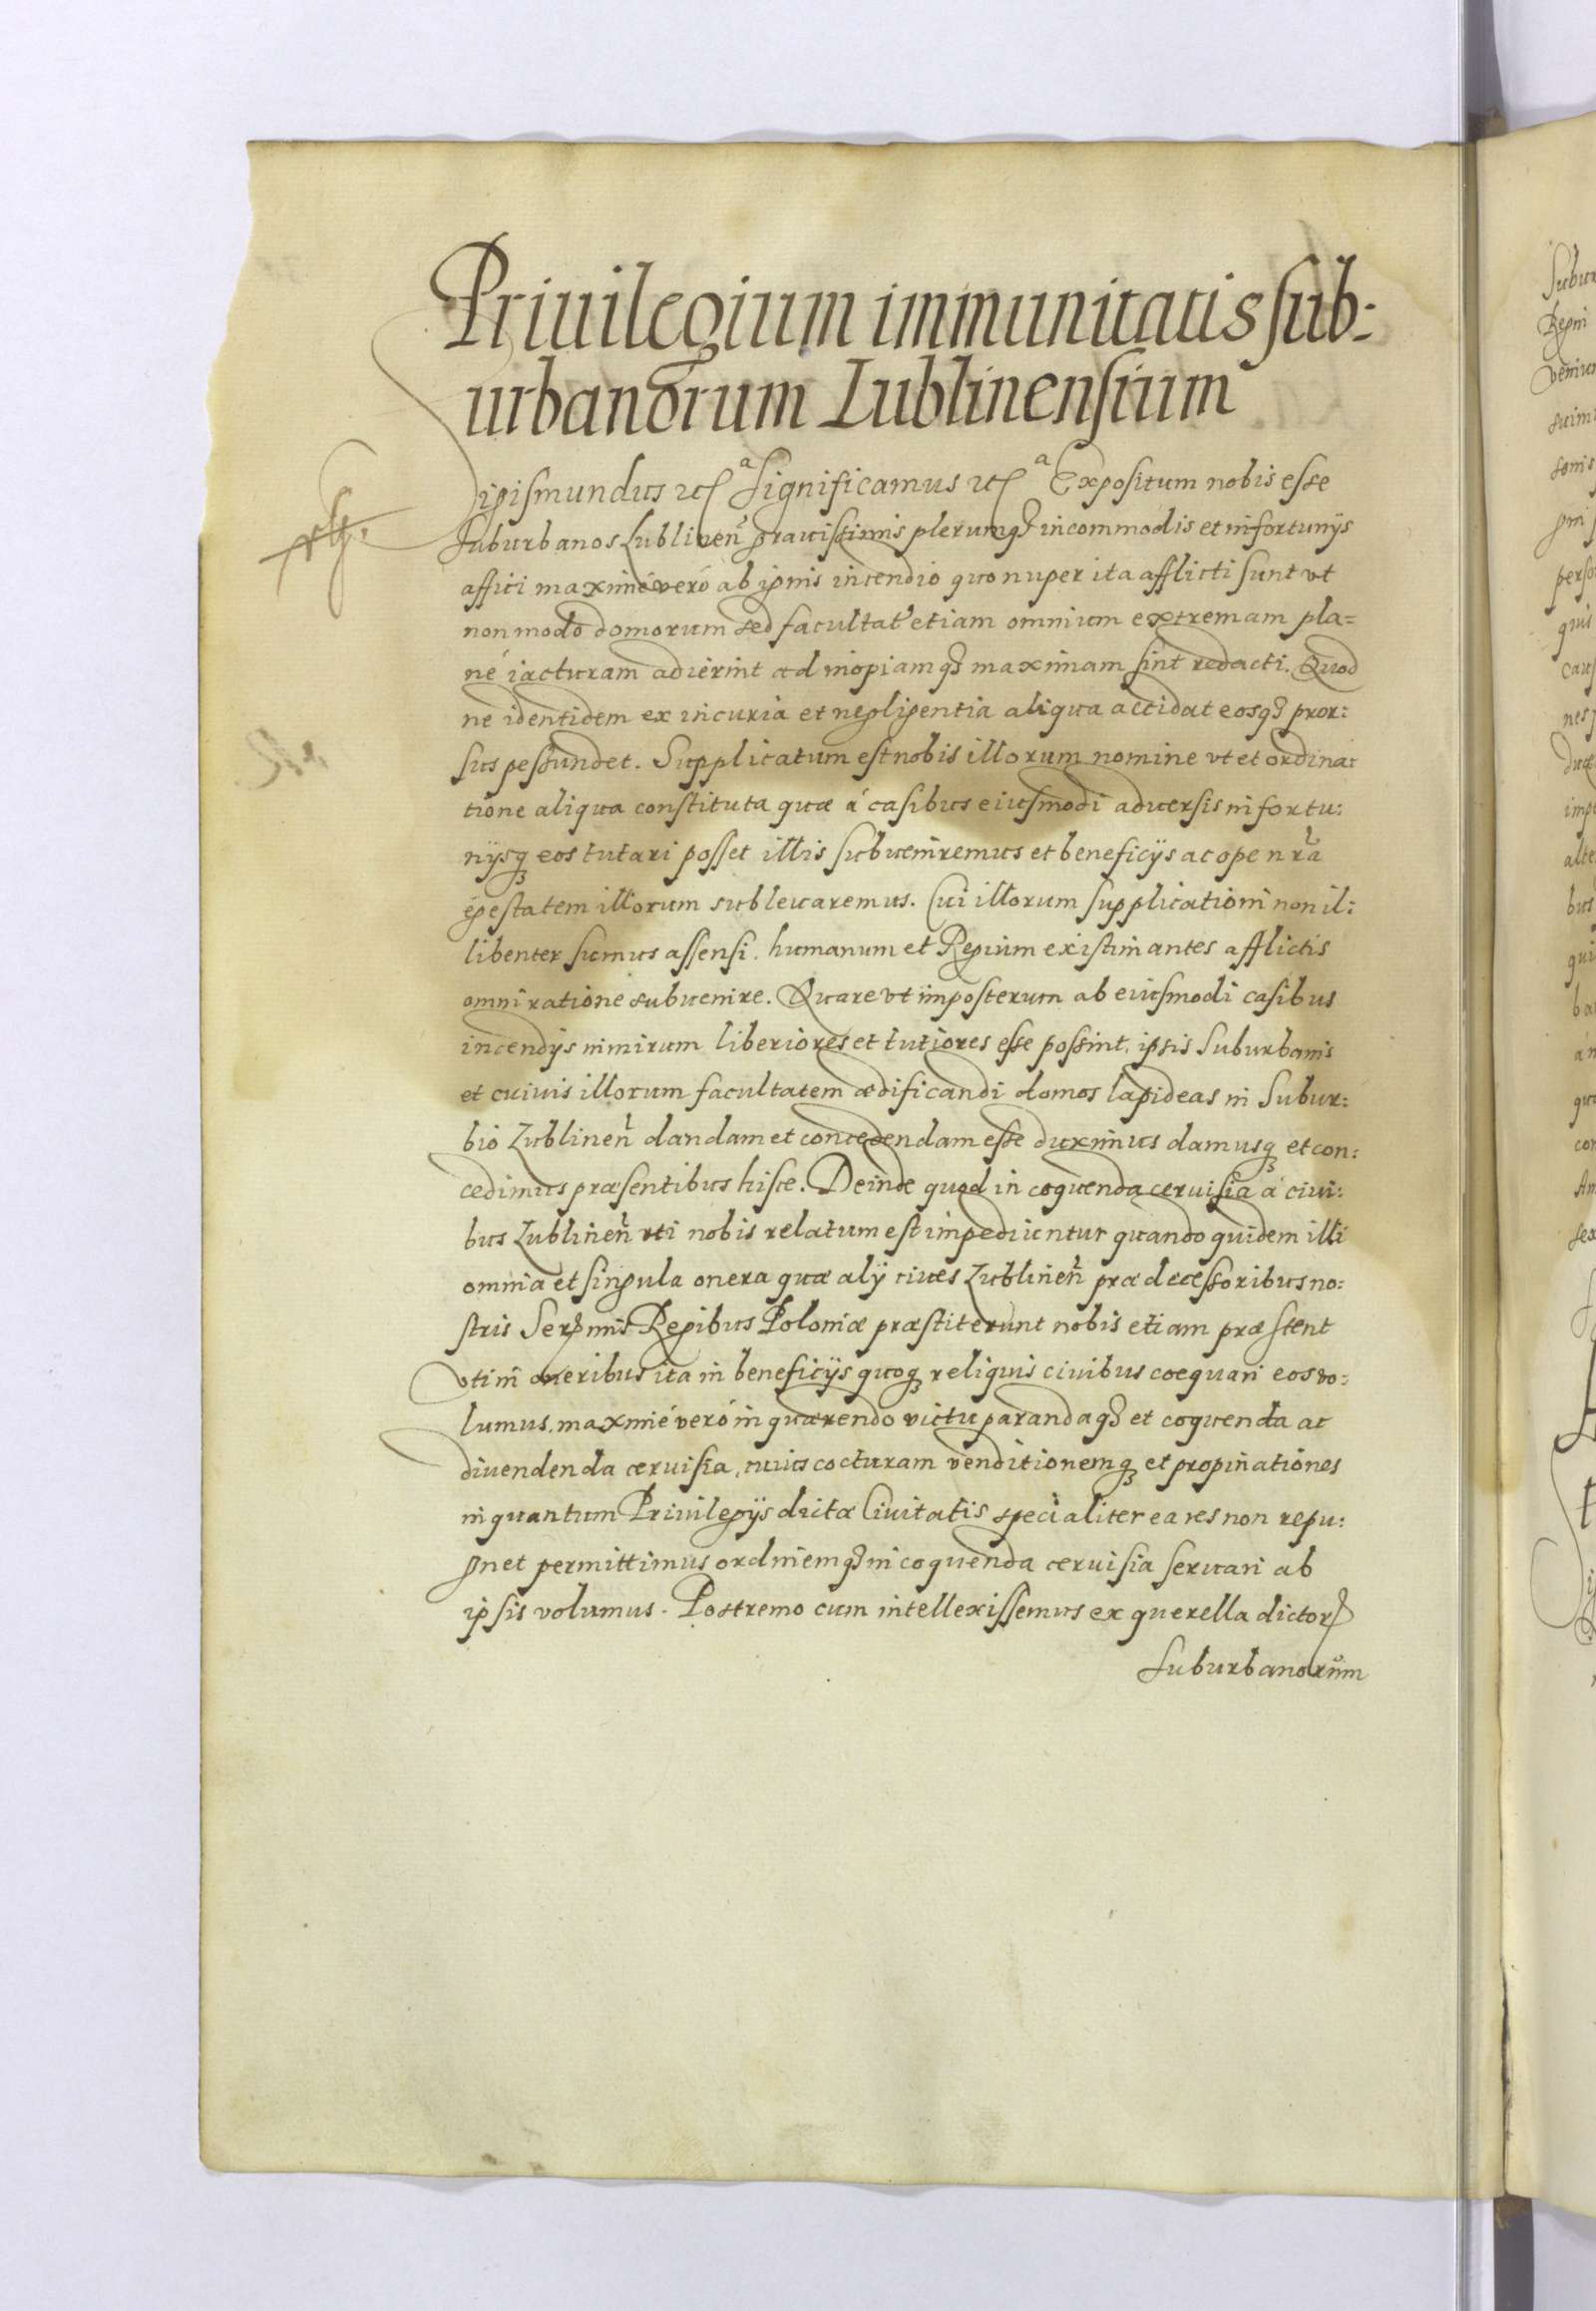 Priuilegium immunitatis sub:
urbanorum Lublinensium
Sigismundus etc̃ Significamus etc̃ Expositum nobis esse
suburbanos Lublinen̄ grauissimis plerumq3 incommodis et infortunijs
affici maximè verò ab ignis incendio quo nuper ita afflicti sunt vt
non modo domorum sed facultat' etiam omnium extremam pla=
nè iacturam adierint ad inopiamq3 maximam sint redacti. Quod
ne identidem ex incuria et negligentia aliqua accidat eosq3 pror:
sus pessundet. Supplicatum est nobis illorum nomine vt et ordina:
tione aliqua constituta quæ à casibus eiusmodi aduersis infortu:
nijsq3 eos tutari posset illis subueniremus et beneficijs ac ope nr̄a
egestatem illorum subleuaremus. Cui illorum supplicationi non il:
libenter sumus assensi. humanum et Regium existimantes afflictis
omni ratione subuenire. Quare vt imposterum ab eiusmodi casibus
incendijs nimirum liberiores et tutiores esse possint, ipsis Suburbanis
et cuiuis illorum facultatem ædificandi domos lapideas in Subur:
bio Lublinen̄ dandam et concedendam esse duximus damusq3 et con:
cedimus præsentibus hisce. Deinde quod in coquenda ceruisia à ciui:
bus Lublinen̄ vti nobis relatum est impediuntur quando quidem illi
omnia et singula onera quæ alij ciues Lublinen̄ prædecessoribus no:
stris Serm̄is Regibus Poloniæ præstiterunt nobis etiam præstent
vti in oneribus ita in beneficijs quoq3 reliquis ciuibus coequari eos vo:
lumus, maximè verò in quærendo victu parandaq3 et coquenda ac
diuendenda ceruisia, cuius cocturam venditionemq3 et propinationes
in quantum Priuilegijs dictæ Ciuitatis specialiter ea res non repu:
gnet permittimus ordinemq3 in coquenda ceruisia seruari ab
ipsis volumus. Postremo cum intellexissemus ex querella dictor̃
suburbanorum